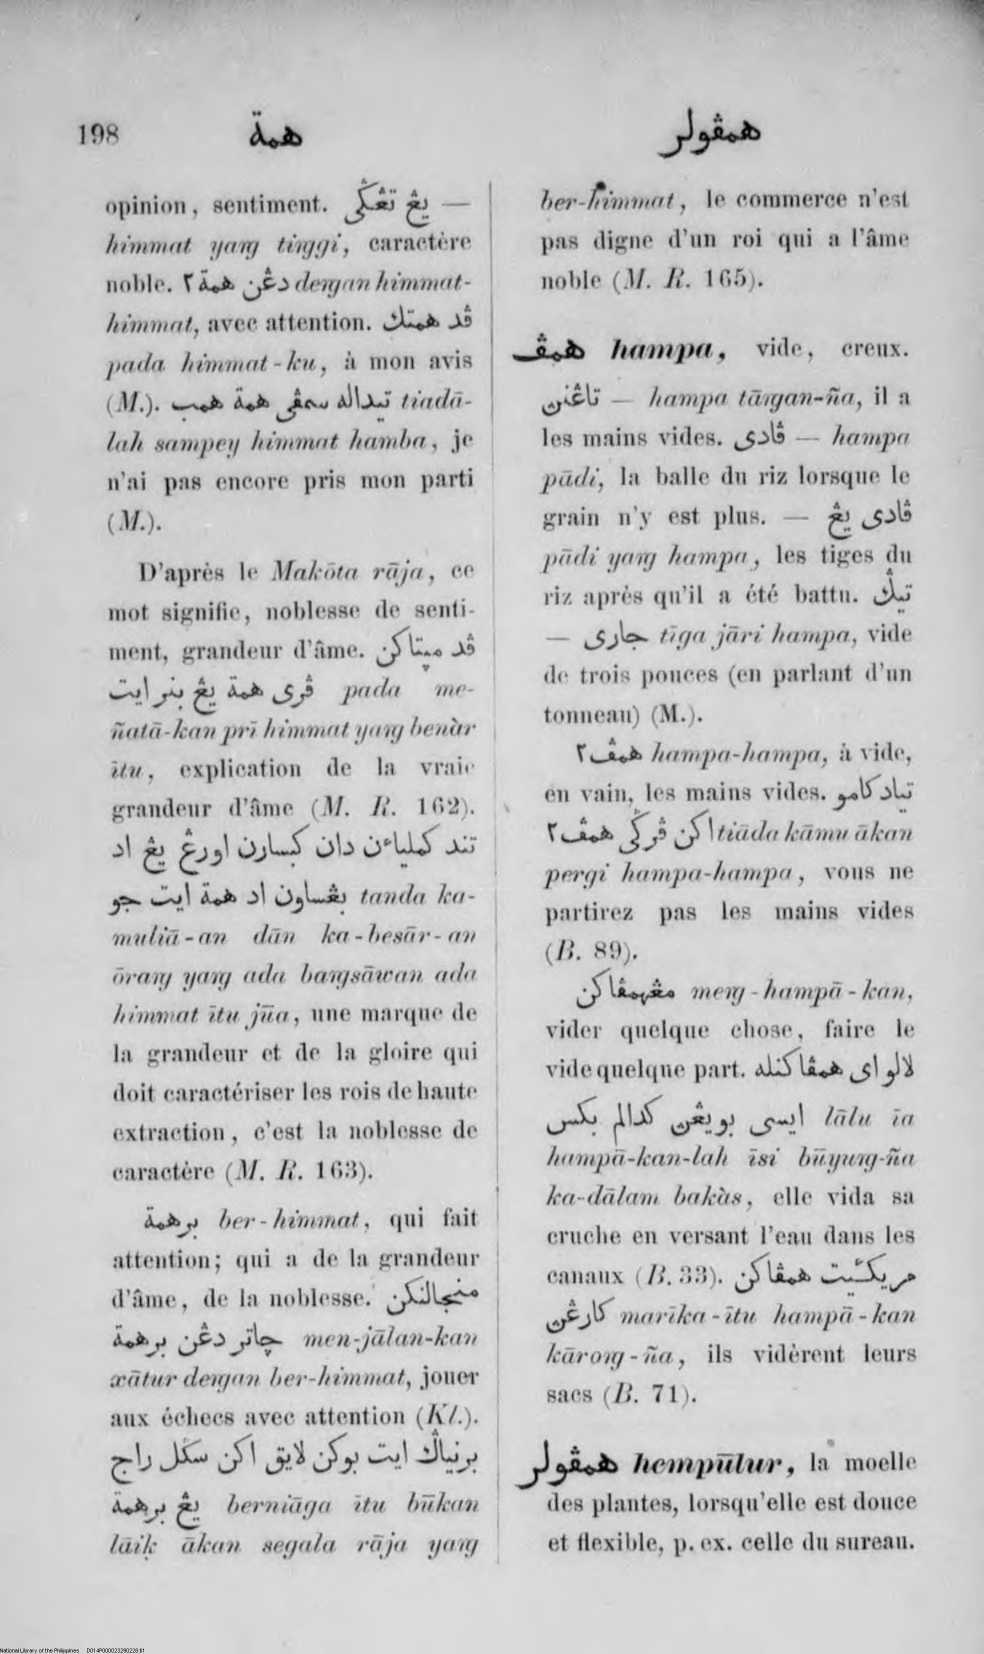 198
همة
همڤولر
opinion, sentiment. يڠ تڠݢي —
himmat yaŋ tiŋgi, caractère
noble. دڠن همة٢ deŋan himmat-
himmat, avec attention. ڤد همتك
pada himmat-ku, à mon avis
(M.). تيداله سمڤي همة همب tiadā-
lah sampey himmat hamba, je
n'ai pas encore pris mon parti
(M.).
D'après le Makōta rāja, ce
mot signifie, noblesse de senti-
ment, grandeur d'âme. ڤد مپتاكن
ڤري همة يڠ بنر ايت pada me-
ñatā-kan prī himmat yaŋ benàr
ītu, explication de la vraie
grandeur d'âme (M. R. 162).
تند كملياءن دان كبسارن اورڠ يڠ اد
بڠساون اد همة ايت جو tanda ka-
muliā-an dān ka-besār-an
ōraŋ yaŋ ada baŋsāwan ada
himmat ītu jūa, une marque de
la grandeur et de la gloire qui
doit caractériser les rois de haute
extraction, c'est la noblesse de
caractère (M. R. 163).
برهمة ber-himmat, qui fait
attention; qui a de la grandeur
d'âme, de la noblesse. منجالنكن
چاتر دڠن برهمة men-jālan-kan
xātur deŋan ber-himmat, jouer
aux échecs avec attention (Kl.).
برنياݢ ايت بوكن لايق اكن سݢل راج
يڠ برهمة berniāga ītu būkan
lāiḳ ākan segala rāja yaŋ
ber-himmat, le commerce n'est
pas digne d'un roi qui a l'âme
noble (M. R. 165).
همڤ hampa, vide, creux.
تاڠنن — hampa tāŋan-ña, il a
les mains vides. ڤادي — hampa
pādi, la balle du riz lorsque le
grain n'y est plus. — ڤادي يڠ
pādi yaŋ hampa, les tiges du
riz après qu'il a été battu. تيݢ
— جاري tīga jāri hampa, vide
de trois pouces (en parlant d'un
tonneau) (M.).
همڤ٢ hampa-hampa, à vide,
en vain, les mains vides. تياد كامو
اكن ڤرݢي همڤ٢ tiāda kāmu ākan
pergi hampa-hampa, vous ne
partirez pas les mains vides
(B. 89).
مڠهمڤاكن meŋ-hampā-kan,
vider quelque chose, faire le
vide quelque part. لالو اي همڤاكنله
ايسي بويڠن كدالم بكس lālu īa
hampā-kan-lah īsi būyuŋ-ña
ka-dālam bakàs, elle vida sa
cruche en versant l'eau dans les
canaux (B. 33). مريكئيت همڤاكن
كارڠن marīka-ītu hampā-kan
kāroŋ-ña, ils vidèrent leurs
sacs (B. 71).
همڤولر hempūlur, la moelle
des plantes, lorsqu'elle est douce
et flexible, p. ex. celle du sureau.
National Library of the Philippines